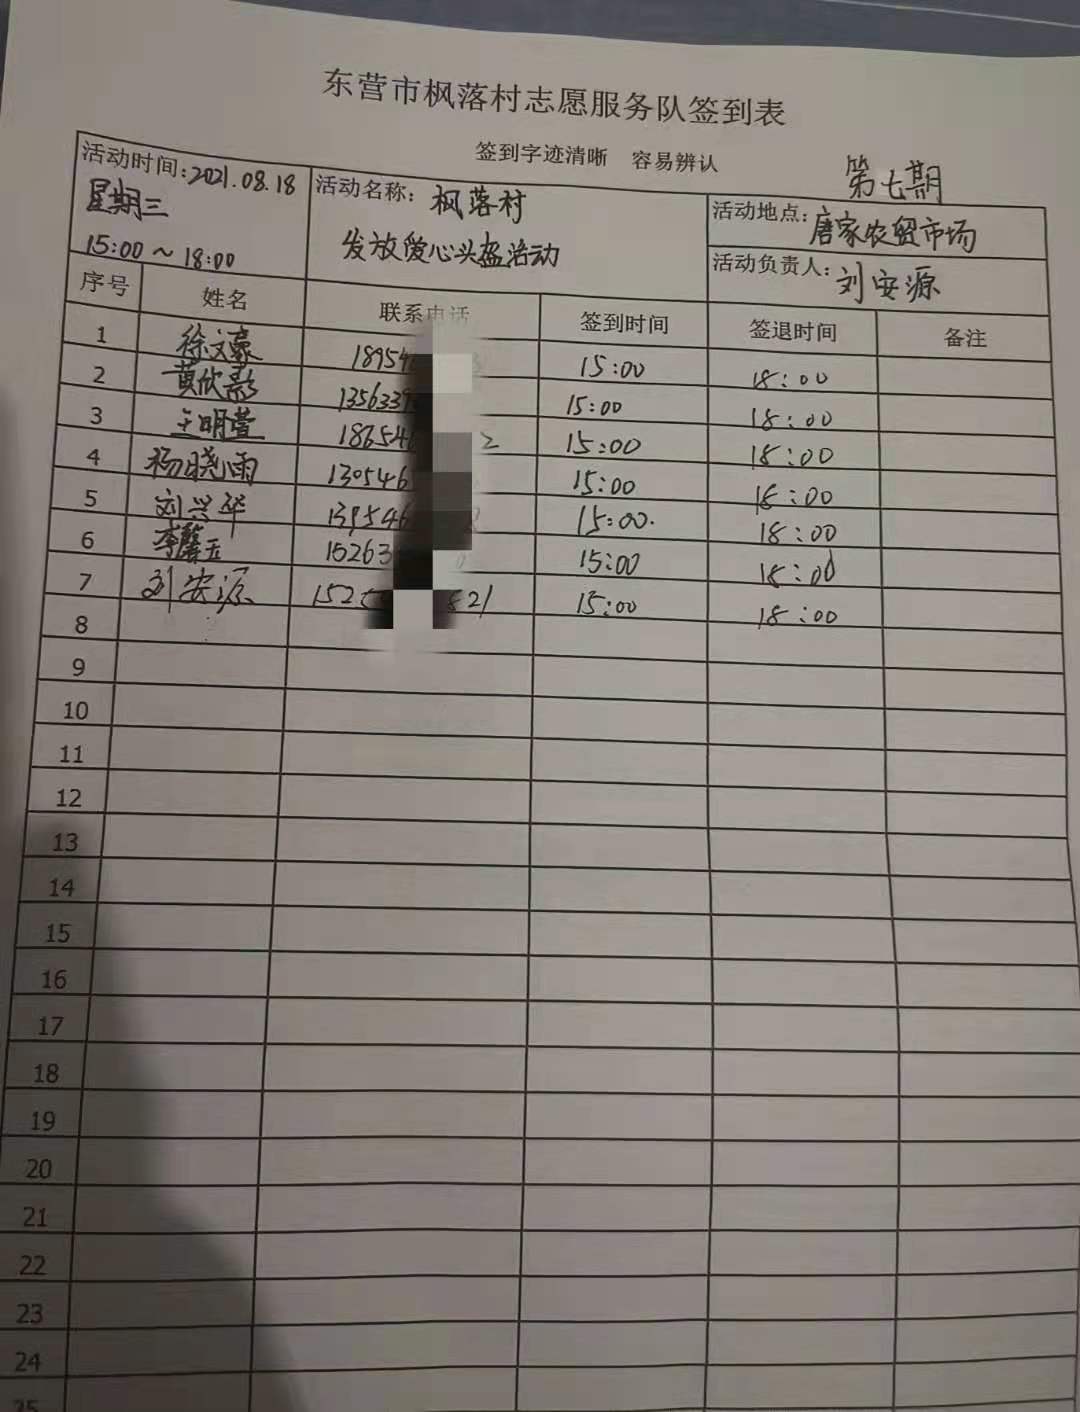 东营市枫落村志愿服务队签到表
签到字迹清晰 容易辨认
第七期
活动时间:2021.08.18
星期三
15:00~18:00
活动名称: 枫落村
发放爱心头盔活动
活动地点: 唐家农贸市场
活动负责人: 刘安源
序号 姓名 联系电话 签到时间 签退时间 备注
1 徐文豪 1895 15:00 18:00
2 黄欣 135633 15:00 18:00
3 王明萱 18654 2 15:00 18:00
4 杨晓雨 130546 15:00 18:00
5 刘兴华 139546 15:00. 18:00
6 李馨玉 15263 15:00 18:00
7 刘安源 152 821 15:00 18:00
8
9
10
11
12
13
14
15
16
17
18
19
20
21
22
23
24
25